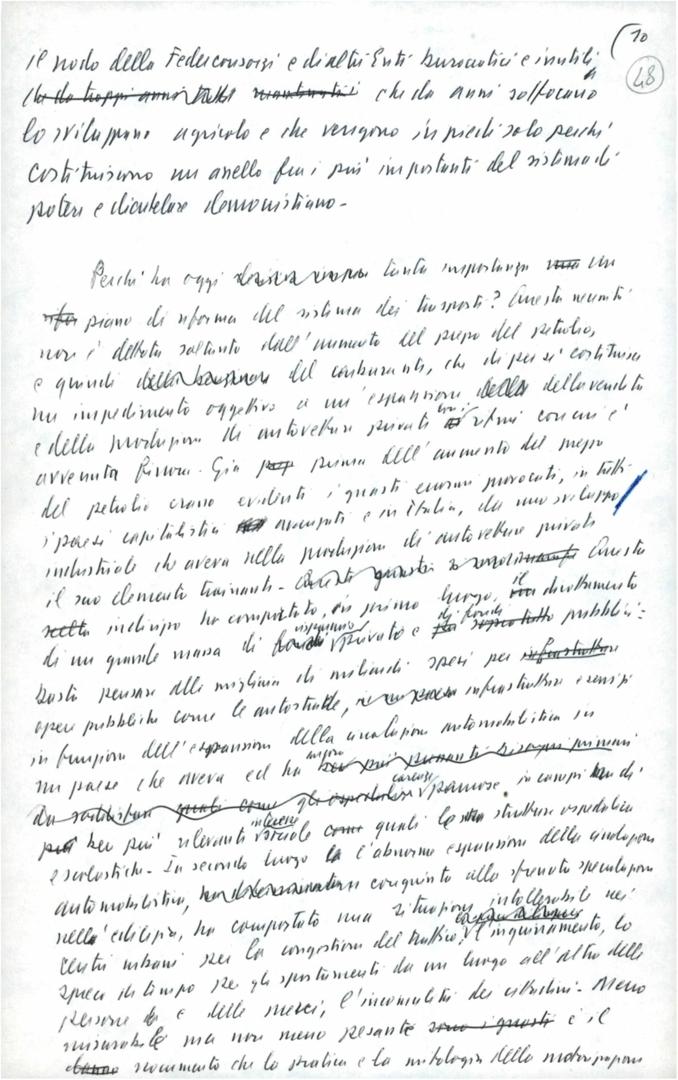 10
48
il nodo della Federconsorzi e di altri Enti burocratici e inutili
che da troppi anni che da anni soffocano
lo sviluppo agricolo e che vengono in piedi solo perché
costituiscono un anello fra i più importanti del sistema di
potere e clientelare democristiano -
Perché ha oggi tanta importanza un
piano di riforma del sistema dei trasporti? Questa necessità
non è dettata soltanto dall'aumento del prezzo del petrolio,
e quindi del carburante, che di per sé costituisce
un impedimento oggettivo a un'espansione della vendita
e della produzione di autovetture private ritmi con cui è
avvenuta finora - Già prima dell'aumento del prezzo
del petrolio erano evidenti i guasti enormi provocati, in tutti
i paesi capitalistici avanzati e in Italia, da uno sviluppo
industriale che aveva nella produzione di autovetture private
il suo elemento trainante - Questo
scelta indirizzo ha comportato, in primo luogo, il dirottamento
di una grande massa di risparmio privato e di fondi pubblici:
basta pensare alle migliaia di miliardi spesi per infrastrutture
opere pubbliche come le autostrade, infrastrutture e servizi
in funzione dell'espansione della circolazione automobilistica in
un paese che aveva ed ha ancora più
da soddisfare quali come gli ospedali carenze paurose in campi di
ben più rilevante interesse sociale come quali le strutture ospedaliere
e scolastiche - In secondo luogo l'abnorme espansione della circolazione
automobilistica, congiunta alla sfrenata speculazione
nell'edilizia, ha comportato una situazione intollerabile nei
centri urbani per la congestione del traffico, l'inquinamento, lo
spreco di tempo per gli spostamenti da un luogo all'altro delle
persone e delle merci, l'incomunità dei cittadini - Meno
misurabile ma non meno pesante sono i guasti è il
danno nocumento che la pratica e la mitologia della motorizzazione